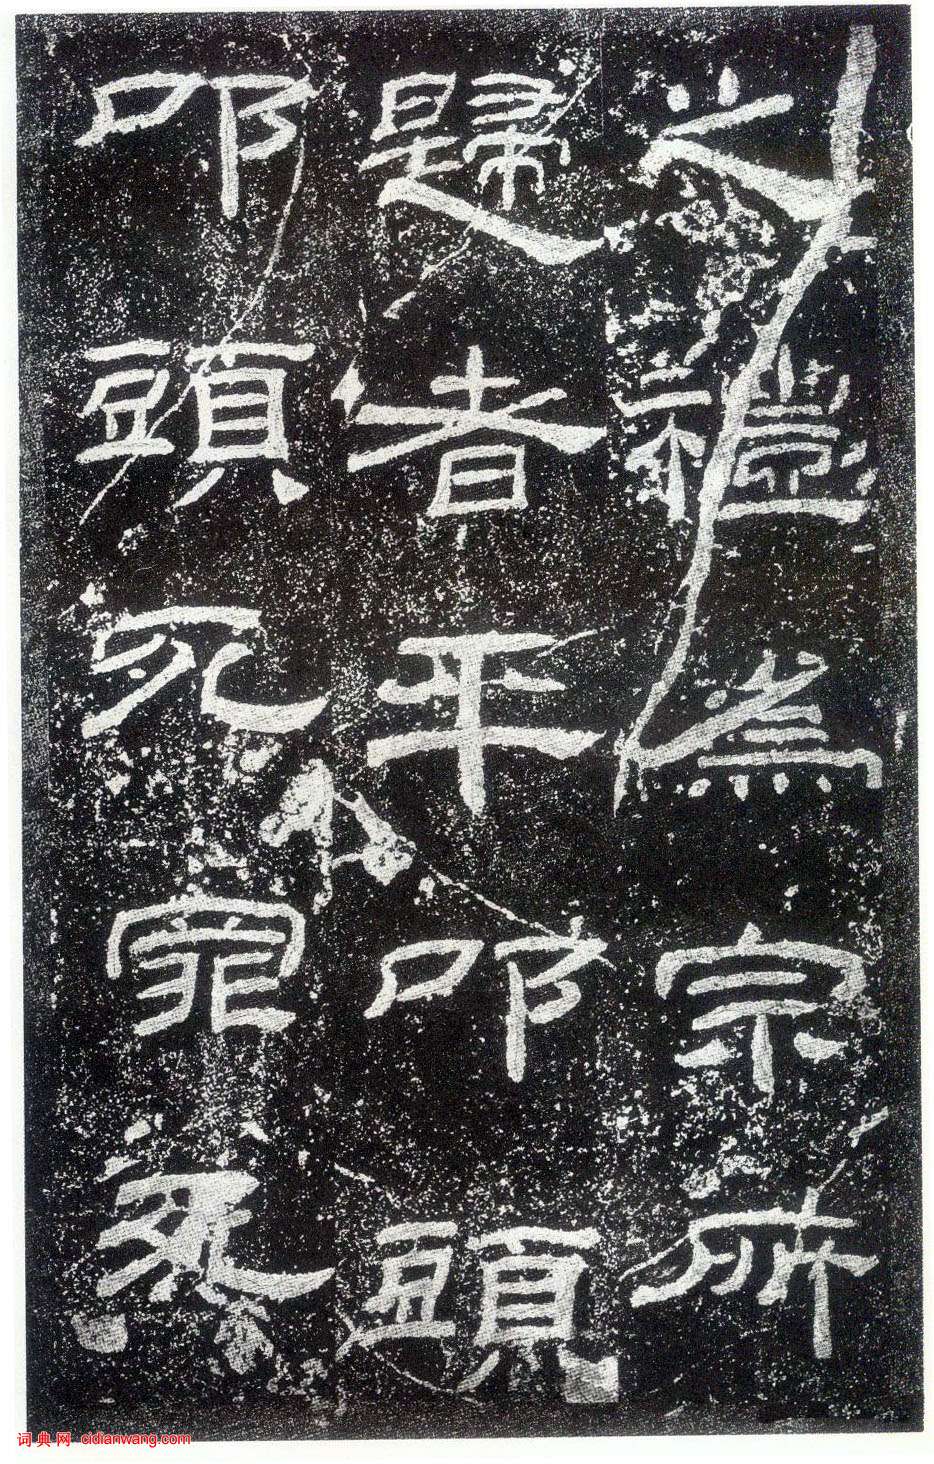 之禮為宗所
歸者平叩頭
叩頭死罪死
词典网 cidianwang.com